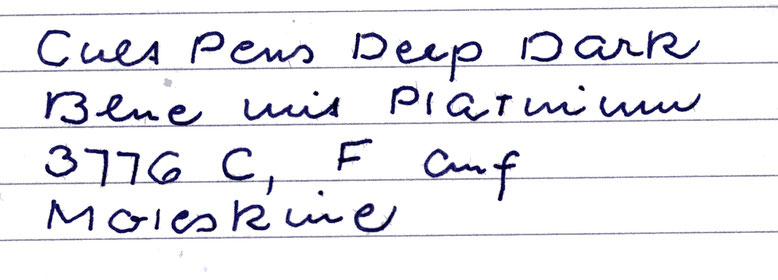 Cult Pens Deep Dark
Blue mit Platinium
3776 C, F auf
Moleskine